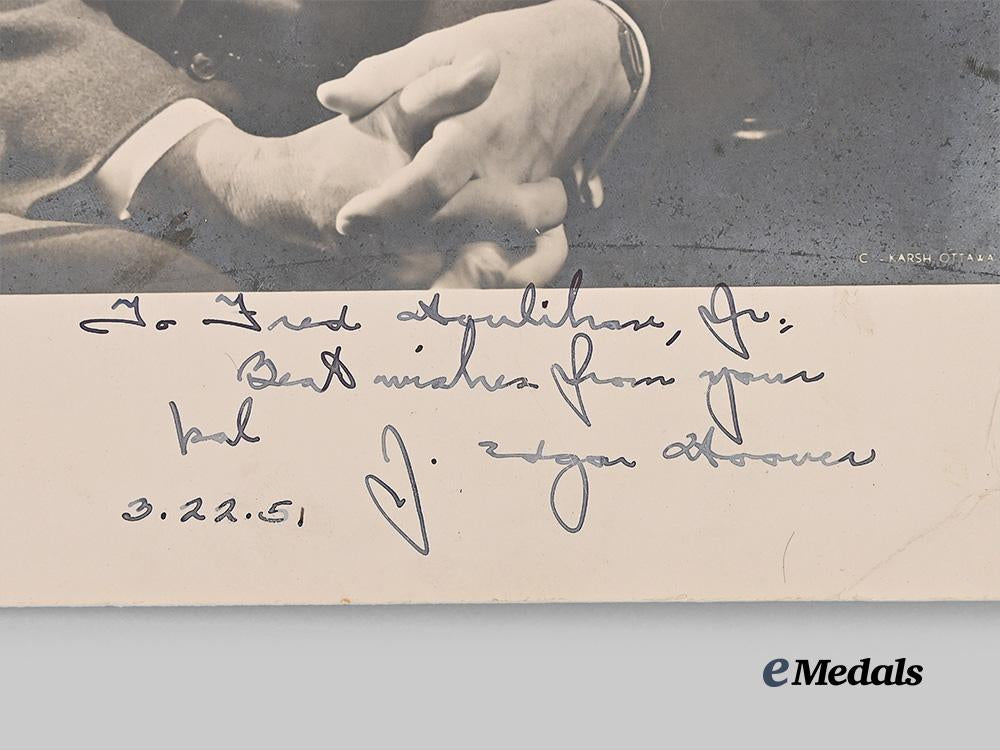 C - KARSH OTTAWA
To Fred Houlihan, Jr.
Best wishes from your
pal J. Edgar Hoover
3.22.51
eMedals